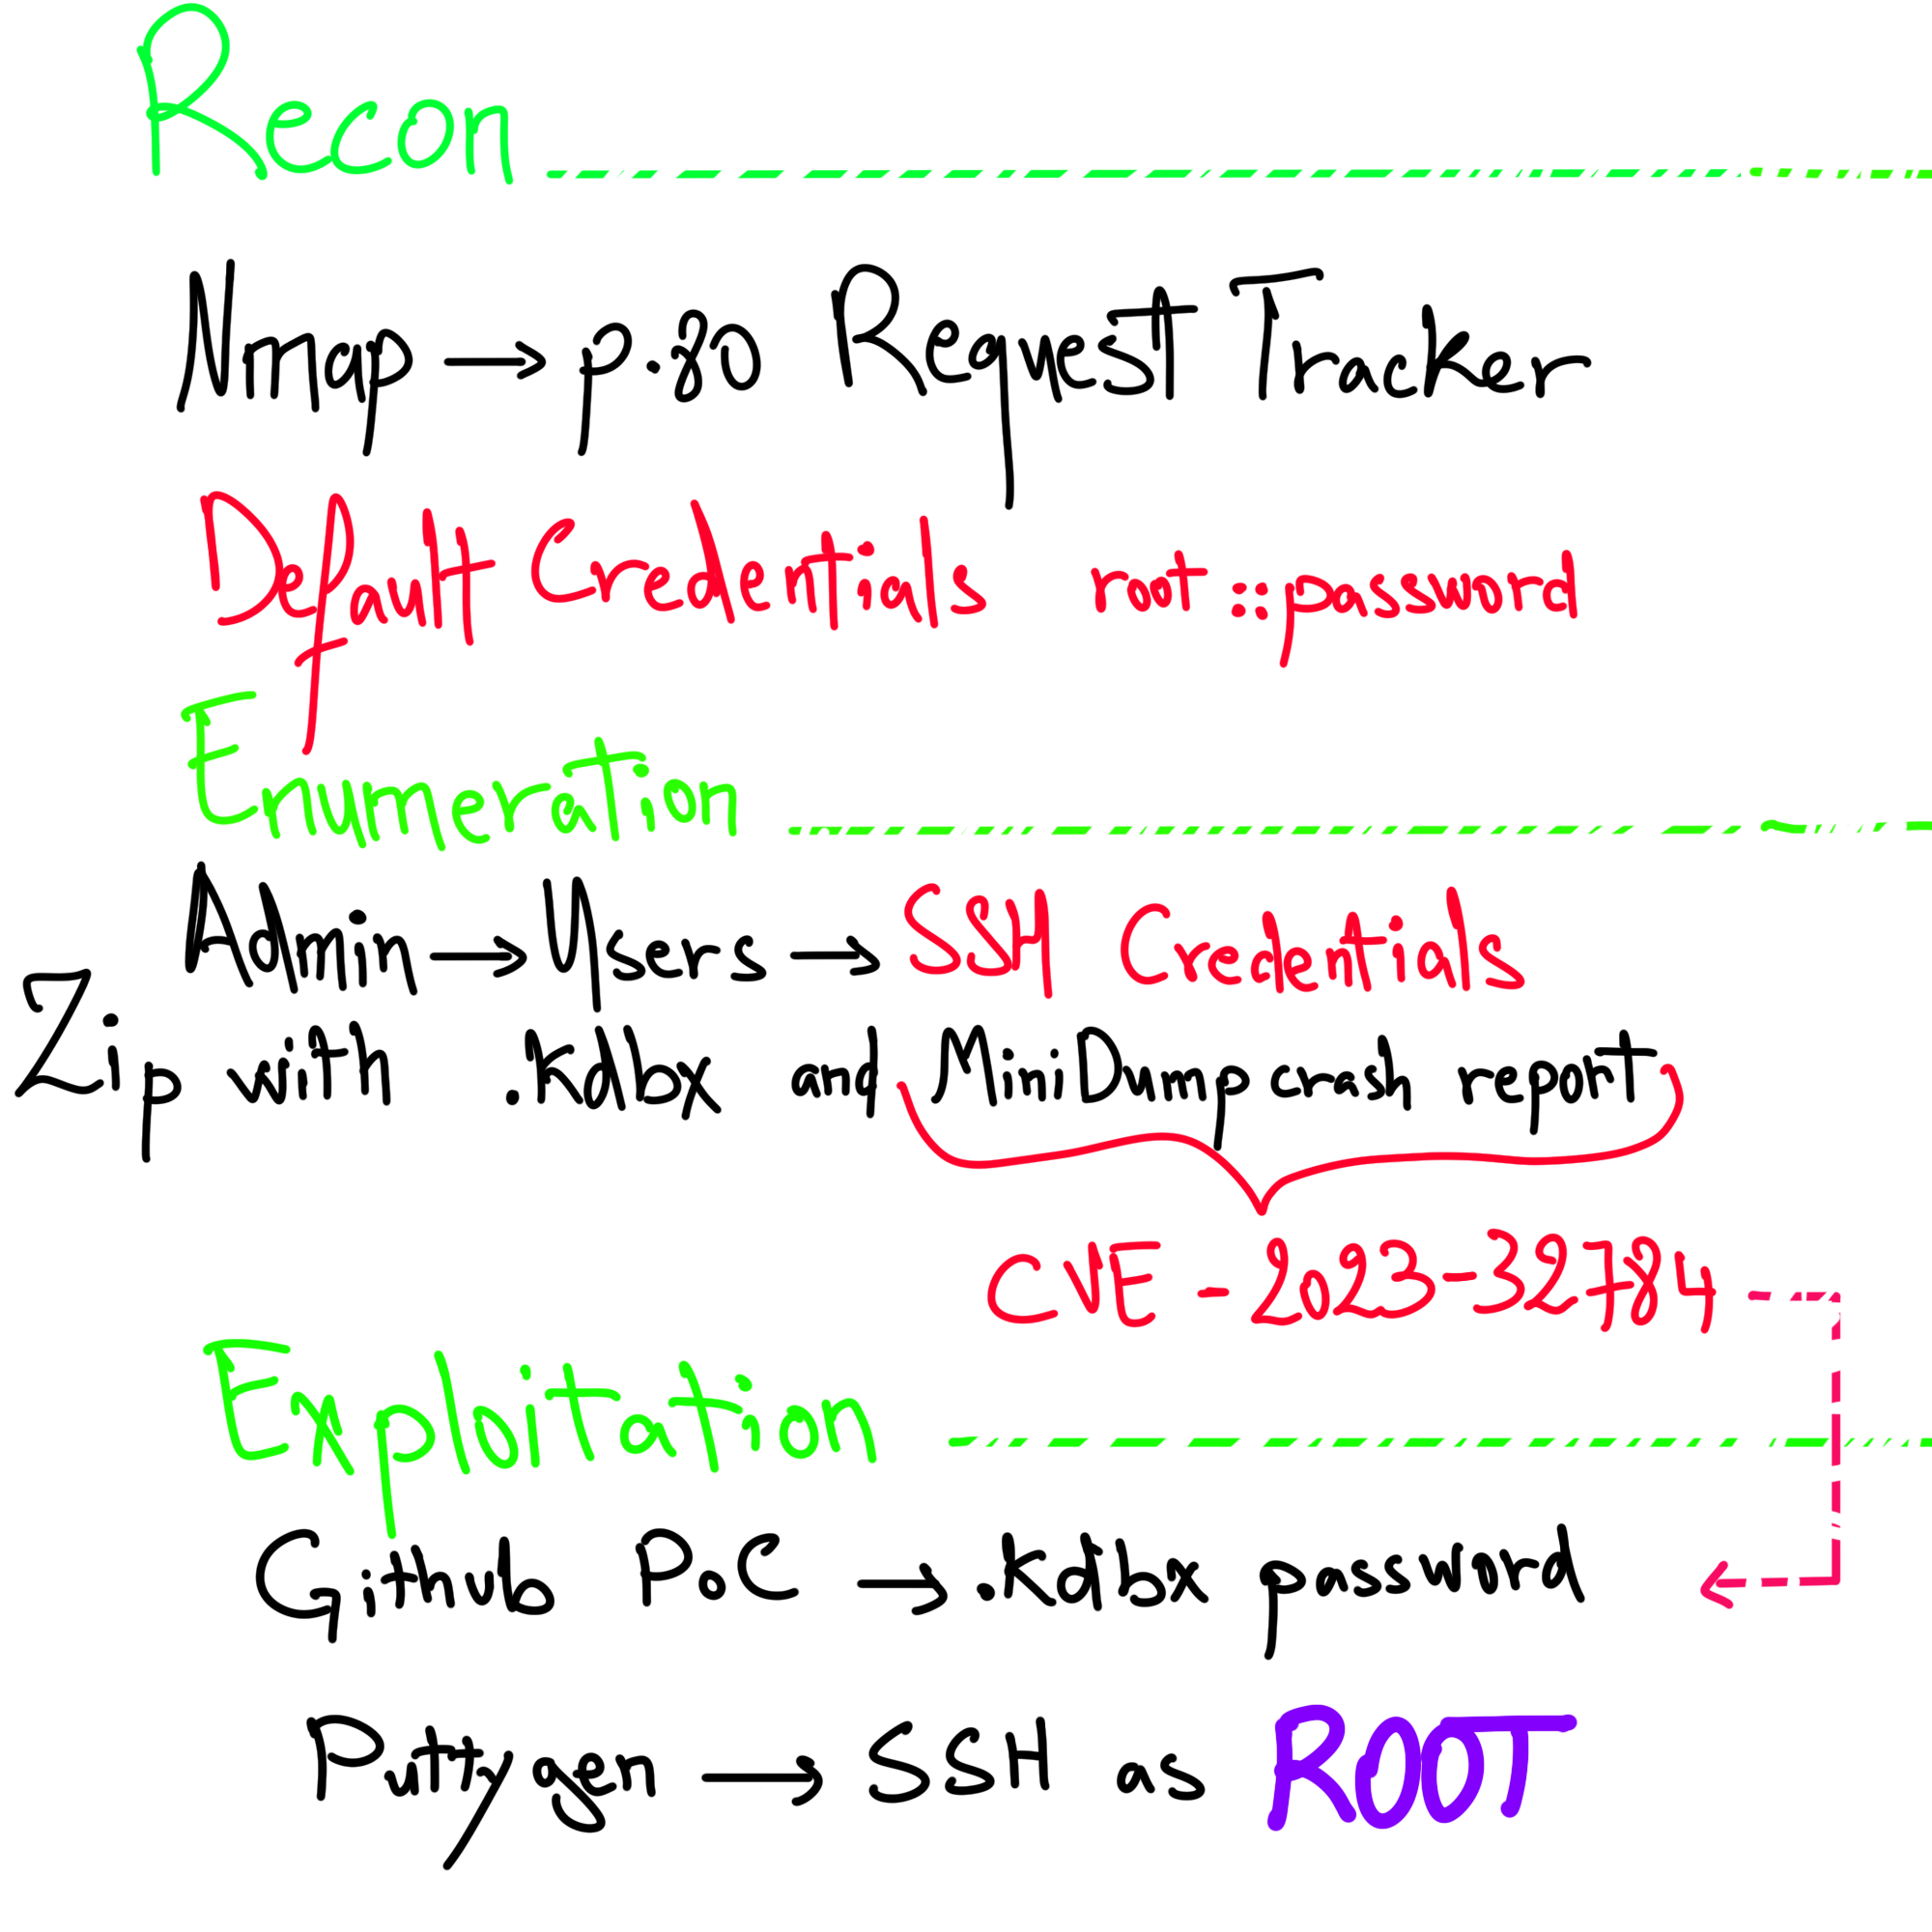 Recon
Nmap → p.80 Request Tracker
Default Credentials root :: password
Enumeration
Admin → Users → SSH Credentials
Zip with .Kdbx and MiniDump crash report
CVE - 2023 - 32784
Exploitation
Github PoC → .Kdbx password
Puttygen → SSH as ROOT